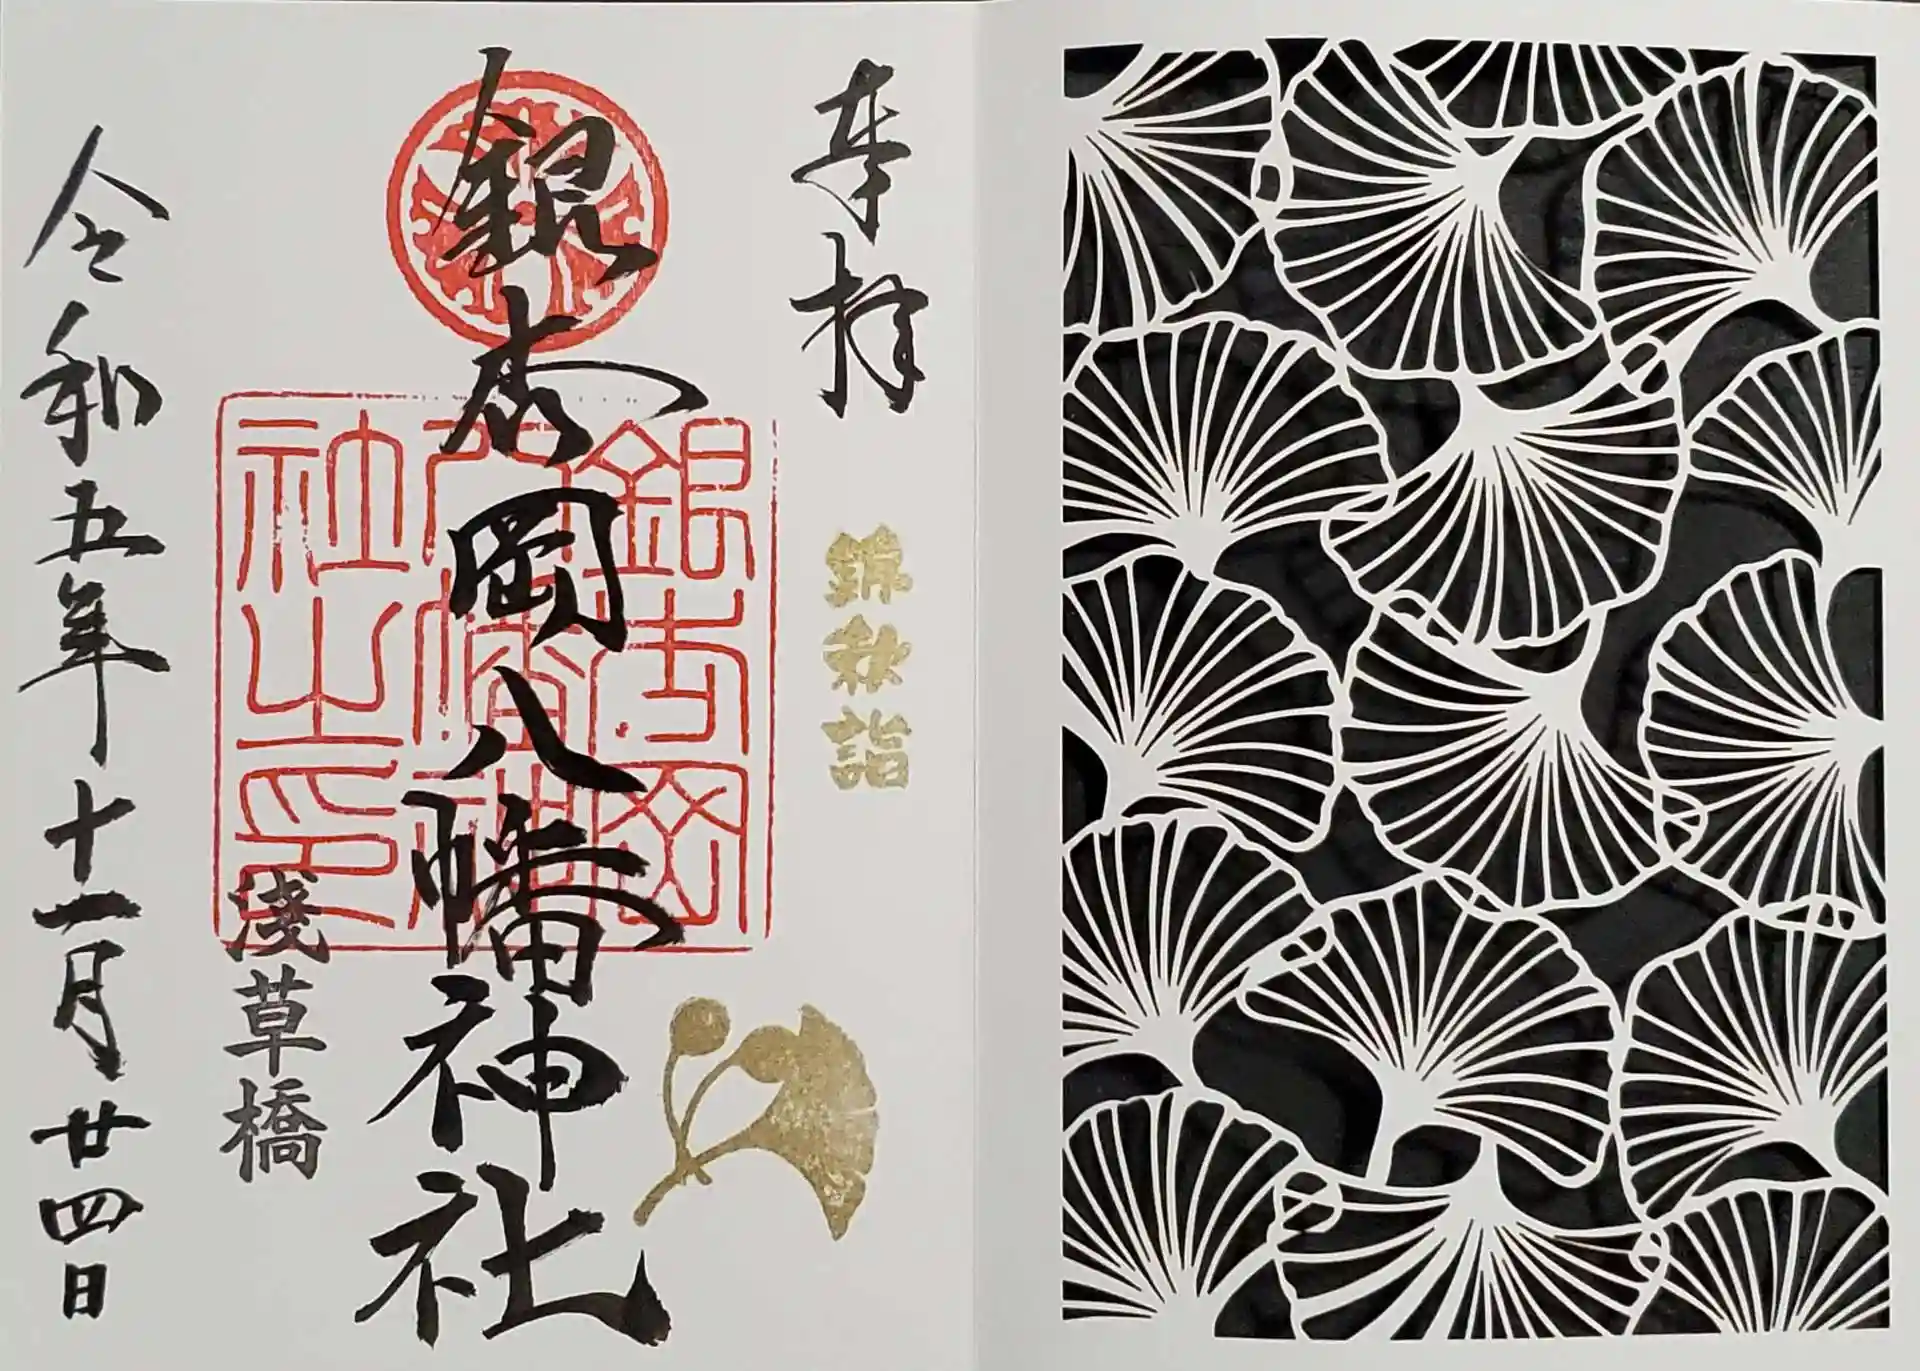 奉拝
錦秋詣
銀杏岡八幡神社
銀杏岡
八幡神
社之印
浅草橋
令和五年十一月廿四日